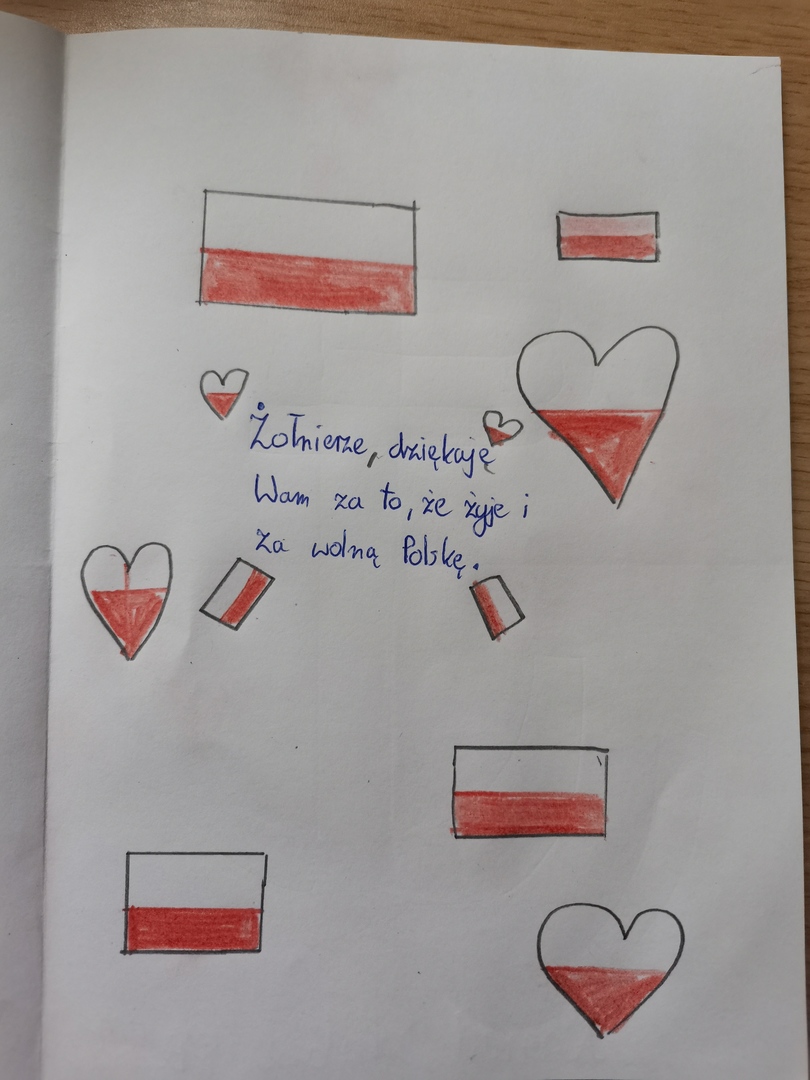 Żołnierze, dziękuję
Wam za to, że żyje i
za wolną Polskę.